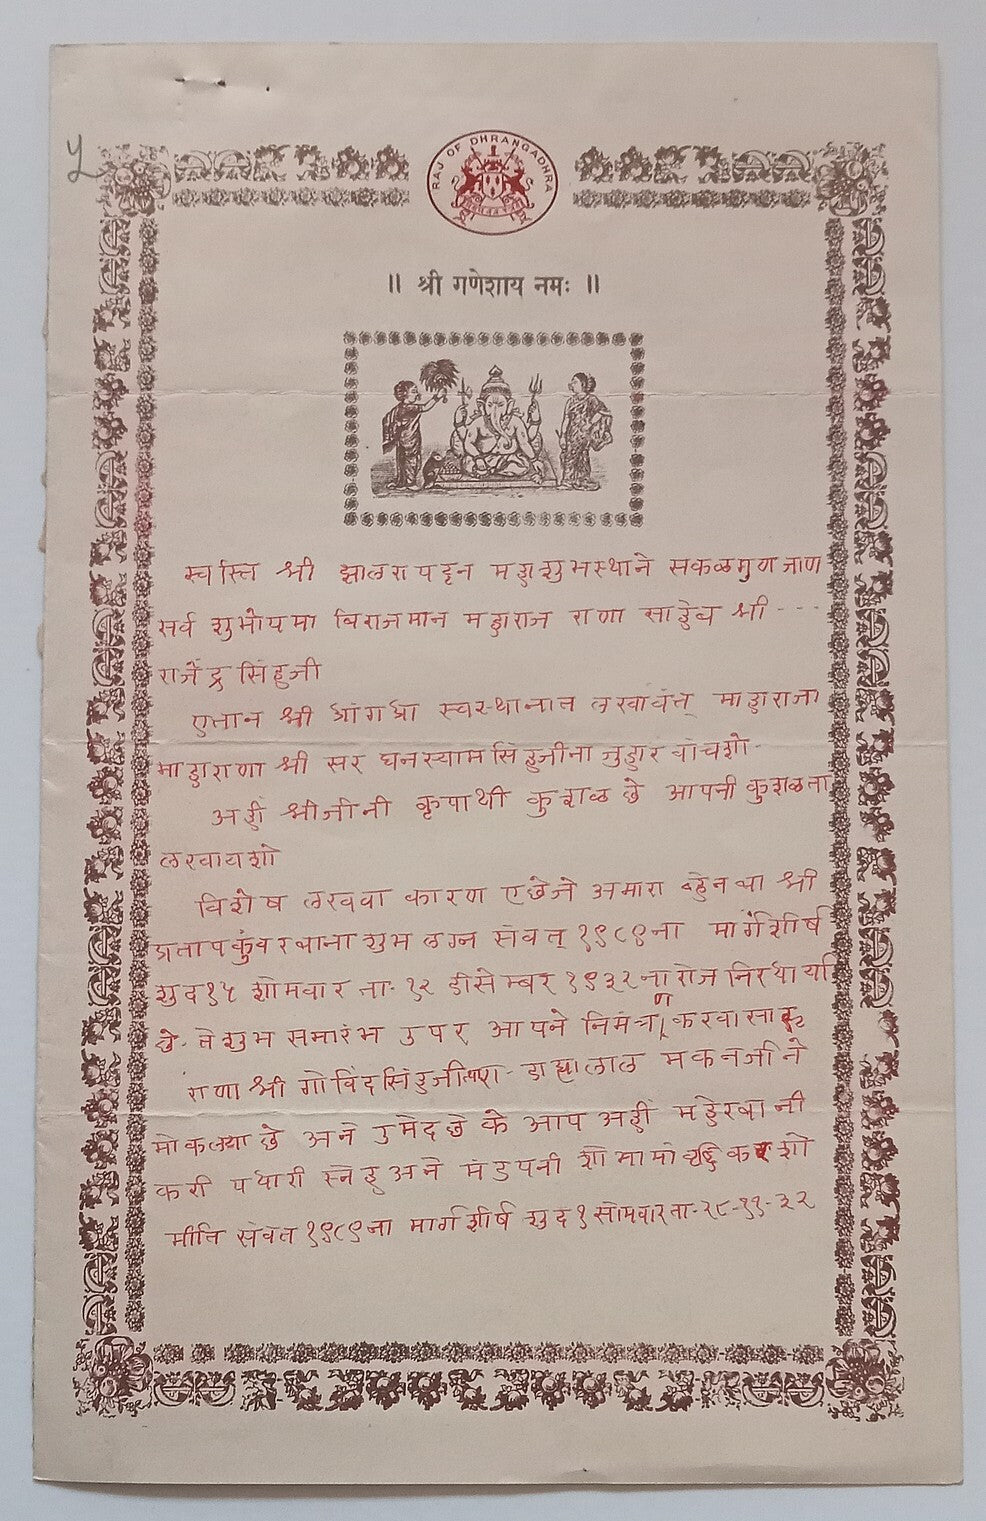 RAJ OF DHRANGADHRA
॥ श्री गणेशाय नमः ॥
स्वस्ति श्री झालरापट्टन महाशुभस्थाने सकळगुणजाण
सर्व शुभोपमा विराजमान महाराज राणा साहेब श्री ---
राजेंद्रसिंहजी
एतान श्री ध्रांगध्रा स्वस्थानात लखावंत् माहाराजा
माहाराणा श्री सर घनस्यामसिंहजीना जुहार वांचशो-
अहीं श्रीजीनी कृपाथी कुशळ छे आपनी कुशळता
लखावशो
विशेष लखवा कारण ए छे जे अमारा ब्हेन बा श्री
प्रतापकुंवरबाना शुभ लग्न संवत् १९८९ना मार्गशीर्ष
शुद १५ शोमवार ता- १२ डीसेम्बर १९३२ना रोज निरधार्या
छे- ते शुभ समारंभ उपर आपने निमंत्रण करवा सारु
राणा श्री गोविंदसिंहजी डाह्यालाल मकनजीने
मोकल्या छे अने उमेद छे के आप अहीं महेरबानी
करी पधारी स्नेह अने मंडपनी शोभामां वृद्धि करशो
मीति संवत १९८९ना मार्गशीर्ष शुद १ सोमवार ता-२८-११-३२